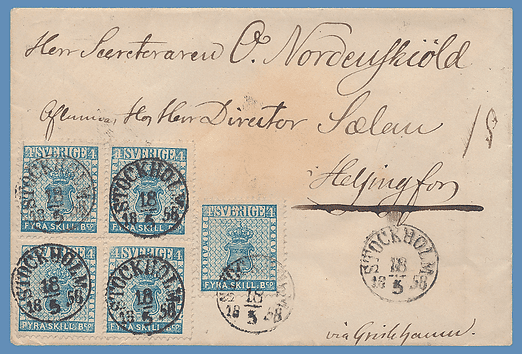 Herr Secreteraren O. Nordenskiöld
Aflemnas Hos Herr Director Sælan
Helsingfors
4 SVERIGE 4
FYRA SKILL. BCO
4 SVERIGE 4
FYRA SKILL. BCO
4 SVERIGE 4
FYRA SKILL. BCO
4 SVERIGE 4
FYRA SKILL. BCO
4 SVERIGE 4
FYRA SKILL. BCO
STOCKHOLM
18
18 5 58
STOCKHOLM
18
18 5 58
STOCKHOLM
18
18 5 58
STOCKHOLM
18
18 5 58
18
18 5 58
STOCKHOLM
18
18 5 58
via Grislehamn.